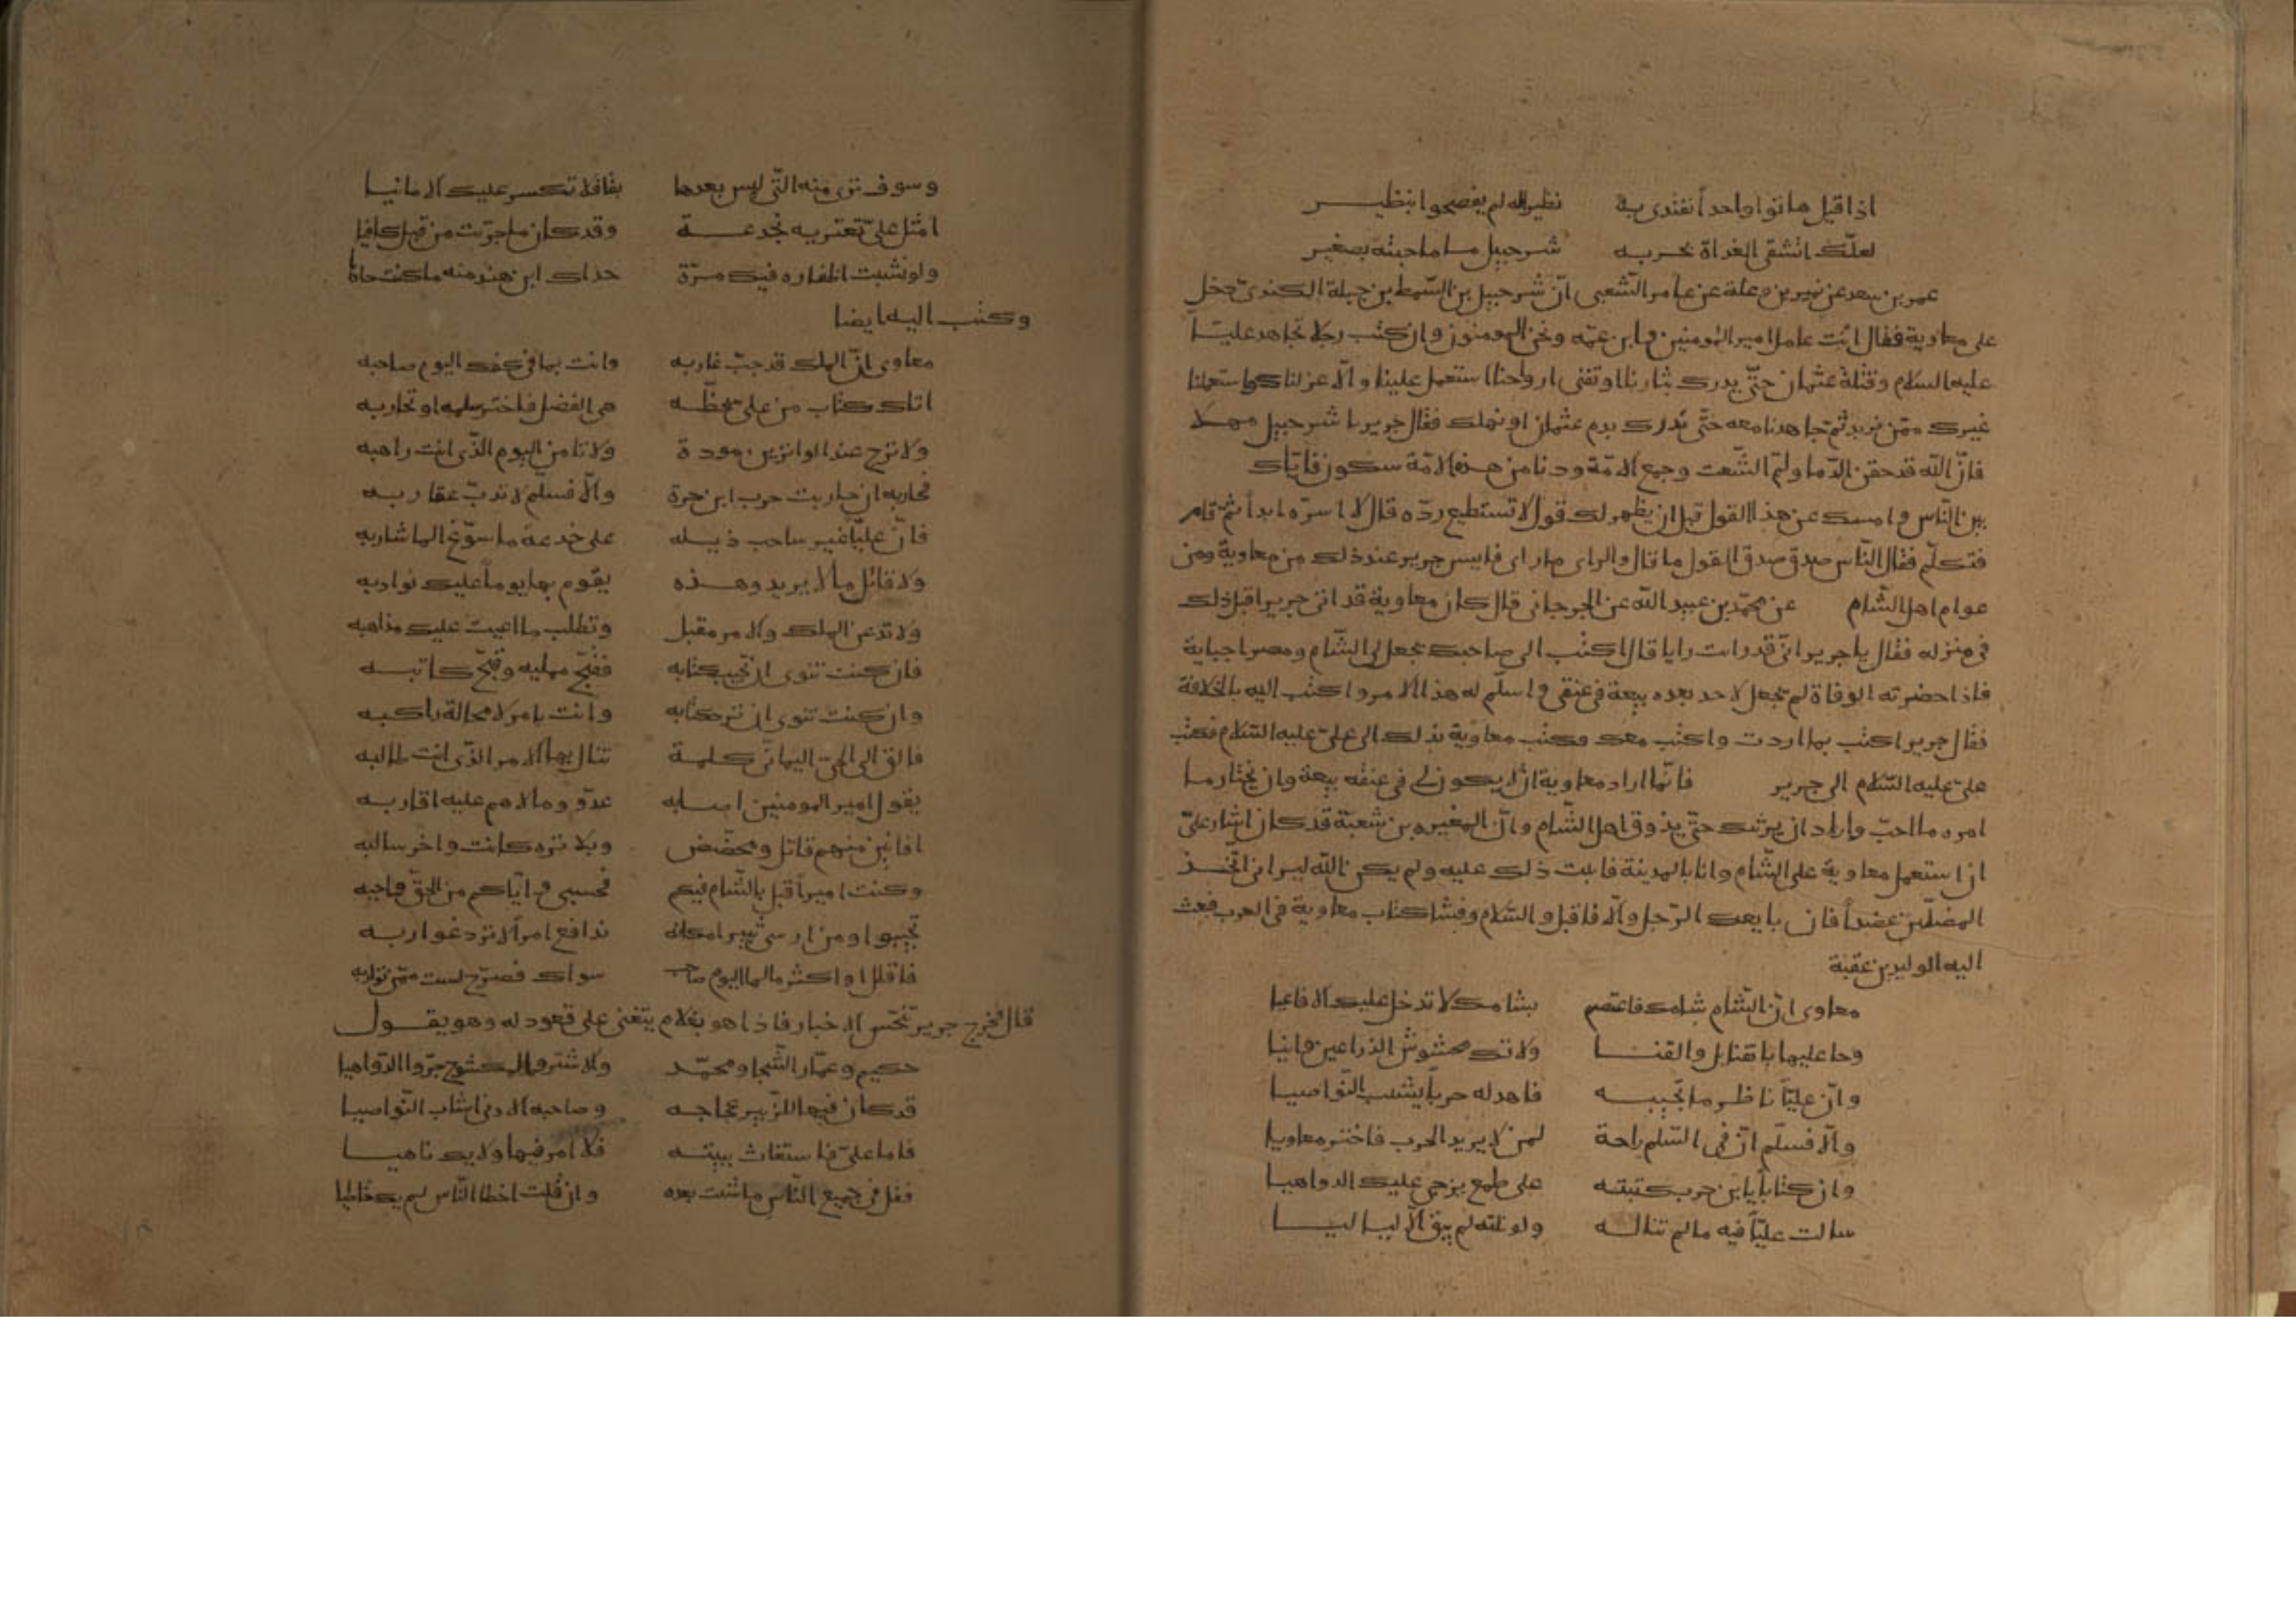 اذا قيل هاتوا واحداً نقتدى به نظيراله لم يفصحوا بنظير
لعلك ان تشقى الغداة بحربه شرحبيل ما ما جئته بصغير
عمر بن سعد عن نمير بن وعلة عن عامر الشعبى انّ شرحبيل بن السّمط بن جبلة الكندىّ دخل
على معاوية فقال انت عامل امير المومنين وابن عمّه ونحن المومنون وان كنت رجلا تجاهد عليّا
عليه السلام وقتلة عثمان حتّى يدرك بثارنا او تفنى ارواحنا استعمل علينا والّا عزلناك واستعملنا
غيرك ممّن نريد ثم جاهدنا معه حتّى ندرك بدم عثمان او نهلك فقال جرير يا شرحبيل مهلا
فانّ الله قد حقن الدّما ولمّ الشّعث وجمع الامّة ودنا من هذه الامّة سكون فايّاك
بين النّاس وامسك عن هذا القول قبل ان يظهر لك قول لا تستطيع ردّه قال لا اسرّه ابداً ثمّ قام
فتكلّم فقال النّاس صدق صدق القول ما قال والراى ما راى فايس جرير عند ذلك من معاوية ومن
عوام اهل الشّام عن محمّد بن عبيد الله عن الجرجانى قال كان معاوية قد اتى جريرا قبل ذلك
فى منزله فقال يا جرير انّى قد رايت رايا قال اكتب الى صاحبك يجعل لى الشّام ومصر جباية
فاذا حضرته الوفاة لم يجعل لاحد بعده بيعة فى عنقى واسلّم له هذا الامر واكتب اليه بالخلافة
فقال جرير اكتب بما اردت واكتب معك وكتب معاوية بذلك الى علىّ عليه السّلام فكتب
علىّ عليه السّلام الى جرير فانّما اراد معاوية ان لا يكون لى فى عنقه بيعة وان يختار من
امره ما احبّ واراد ان يريثك حتّى يذوق اهل الشّام وانّ المغيره بن شعبة قد كان اشار علىّ
ان استعمل معاوية على الشّام وانا بالمدينة فابيت ذلك عليه ولم يكن الله ليرانى اتّخذ
المضلّين عضداً فان بايعك الرّجل والّا فاقبل والسّلام وفشا كتاب معاوية فى العرب فبعث
اليه الوليد بن عقبة
معاوى انّ الشّام شامك فاعتصم بشامك لا تدخل عليك الافاعيا
وحام عليها بالقنابل والقنا ولا تك محشوش الذراعين وانيا
وانّ عليّاً ناظر ما تجيبه فاهد له حرباً يشيب النّواصيا
والّا فسلّم انّ فى السّلم راحة لمن لا يريد الحرب فاختر معاويا
وان كتاباً يا ابن حرب كتبته على طمع يزجى عليك الدواهيا
سالت عليّاً فيه ما لم تناله ولو نلته لم يبق الّا لياليا
وسوف ترى منه الّتى ليس بعدها بقاء فلا تكسر عليك الامانيا
امثل علىّ تعتريه بخدعة وقد كان ما جرّبت من قبل كافيا
ولو نشبت اظفاره فيك مرّة حذاك ابن هند منه ما كنت حاذيا
وكتب اليه ايضا
معاوى انّ الملك قد جبّ غاربه وانت بما فى كفك اليوم صاحبه
اتاك كتاب من علىّ بخطّه هى الفضل فاختر سلمه او تحاربه
ولا ترج عند الواترين مودة ولا تامن اليوم الّذى انت راهبه
فحاربه ان حاربت حرب ابن حرة والّا فسلّم لا تدبّ عقاربه
فانّ عليّاً غير ساحب ذيله على خدعة ما سوّغ الما شاربه
ولا قائل مالا يريد وهذه يقوم بها يوماً عليك نوادبه
ولا تدعن الملك والامر مقبل وتطلب ما اعيت عليك مذاهبه
فان كنت تنوى ان تجيب كتابه فقبّح ممليه وقبّح كاتبه
وان كنت تنوى ان ترد كتابه وانت بامر لا محالة راكبه
فالق الى الحىّ اليمانّين كلمة تنال بها الامر الّذى انت طالبه
يقول امير المومنين اصابه عدّو ومالاهم عليه اقاربه
افانين منهم قاتل ومحضّض وبلا تره كانت واخر سالبه
وكنت اميراً قبل بالشّام فيكم فحسبى وايّاكم من الحقّ واجبه
تجيبوا ومن ارسى ثبيرا مكانه ندافع امراً لا ترد غواربه
فاقلل او اكثر مالها اليوم صاحب سواك فصرّح لست ممّن تواربه
قال فخرج جرير يتجسّس الاخبار فاذا هو بغلام يتغنى على قعود له وهو يقول
حكيم وعمّار الشّجا ومحمّد والاشتر والمكشوح جرّوا الدّواهيا
قد كان فيها للزّبير عجاجه وصاحبه الادنى اشاب النّواصيا
فاما علىّ فاستغاث ببيته فلا امر فيها ولا يك ناهيا
فقل فى جميع النّاس ما شئت بعده وان قلت اخطا النّاس لم يك خاطيا